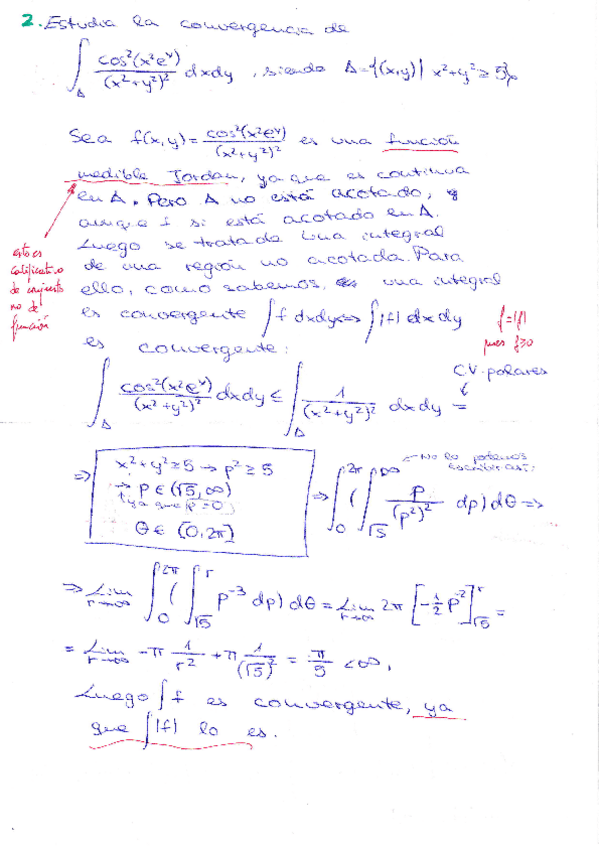 2. Estudia la convergencia de
∫_Δ cos²(x²e^y)/(x²+y²)² dxdy , siendo Δ={(x,y) | x²+y² ≥ 5}
Sea f(x,y) = cos²(x²e^y)/(x²+y²)² es una función
medible Jordan, ya que es continua
en Δ. Pero Δ no está acotado,
aunque f si está acotado en Δ.
Luego se trata de una integral
de una región no acotada. Para
ello, como sabemos, una integral
es convergente ∫f dxdy ⇔ ∫|f| dxdy
es convergente:
esto es
calificativo
de conjunto
no de
función
f=|f|
pues f≥0
∫_Δ cos²(x²e^y)/(x²+y²)² dxdy ≤ ∫_Δ 1/(x²+y²)² dxdy =
C.V. polares
⇒ x²+y² ≥ 5 → ρ² ≥ 5
→ ρ ∈ (√5, ∞)
(ya que ρ=0)
θ ∈ (0, 2π)
← No lo podemos
escribir así:
⇒ ∫_0^{2π} ( ∫_{√5}^{∞} ρ/(ρ²)² dρ) dθ ⇒
⇒ Lim_{r→∞} ∫_0^{2π} ( ∫_{√5}^{r} ρ^{-3} dρ) dθ = Lim_{r→∞} 2π [-1/2 ρ^{-2}]_{√5}^{r} =
= Lim_{r→∞} -π 1/r² + π 1/(√5)² = π/5 < ∞,
Luego ∫f es convergente, ya
que ∫|f| lo es.